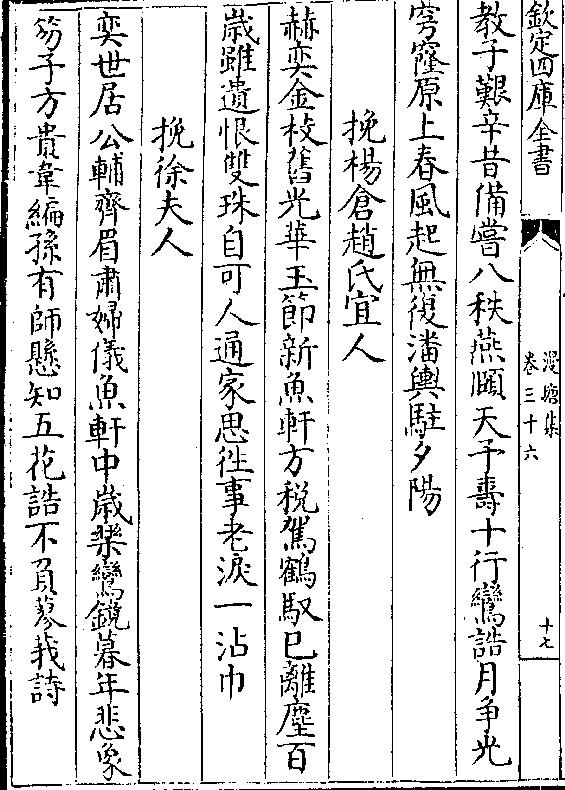 欽定四庫全書
漫塘集
卷三十六
十七
教子艱辛昔備嘗八秩燕頤天予壽十行鸞誥月争光
穹窿原上春風起無復潘輿駐夕陽
挽楊倉趙氏宜人
赫奕金枝舊光華玉節新魚軒方税駕鶴馭已離塵百
歳雖遺恨雙珠自可人通家思徃事老淚一沾巾
挽徐夫人
奕世居公輔齊眉肅婦儀魚軒中歳樂鸞鏡暮年悲象
笏子方貴韋編孫有師懸知五花誥不負蓼莪詩